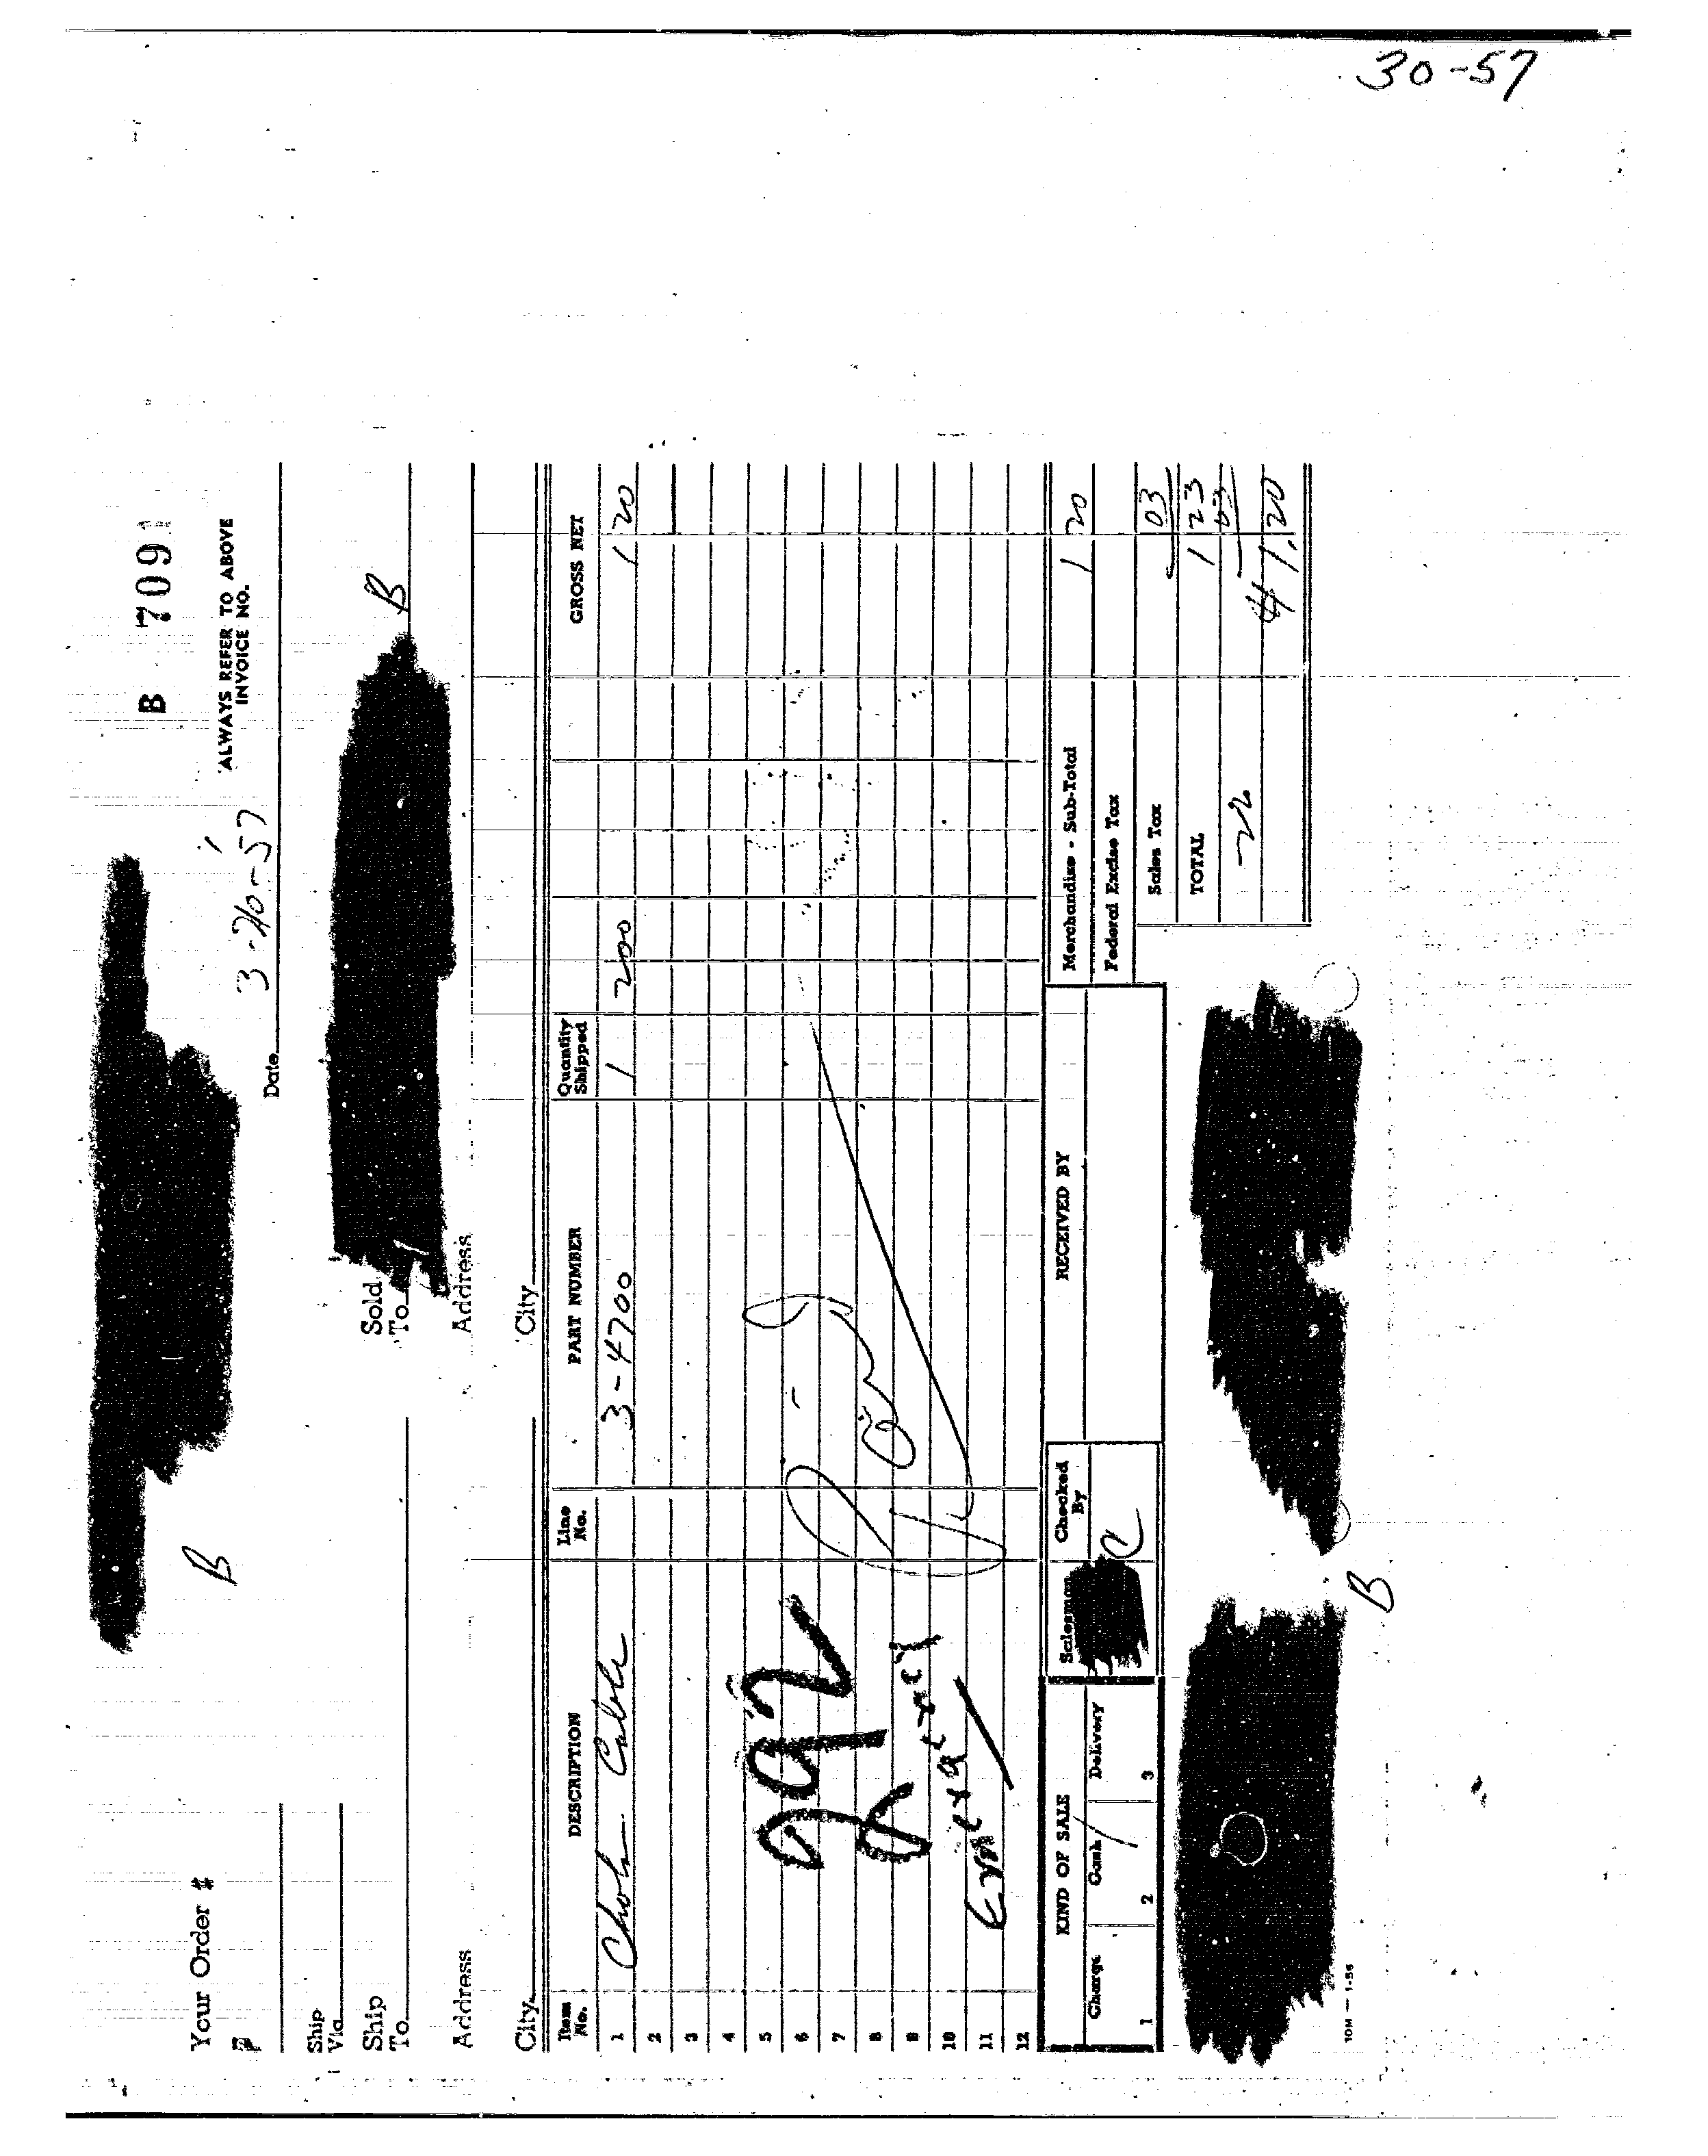 30-57
B 7091
ALWAYS REFER TO ABOVE
INVOICE NO.
B
Your Order #
Date 3-20-57
Ship
Via
Ship
To
Sold
To
B
Address
Address
City
City
Item
No.
DESCRIPTION
Line
No.
PART NUMBER
Quantity
Shipped
GROSS NET
1 Choke Cable 3-4700 1 200 1 20
2
3
4
5
6
7
8
9
10
11
12
KIND OF SALE
Charge Cash Delivery
1 2 3
Salesman
Checked
By
RECEIVED BY
Merchandise - Sub-Total 1 20
Federal Excise Tax
Sales Tax 03
TOTAL 1 23
03
1.20
B
10M — 1-56